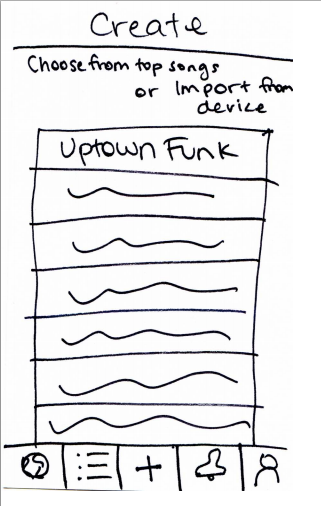 Create
Choose from top songs
or Import from
device
Uptown Funk